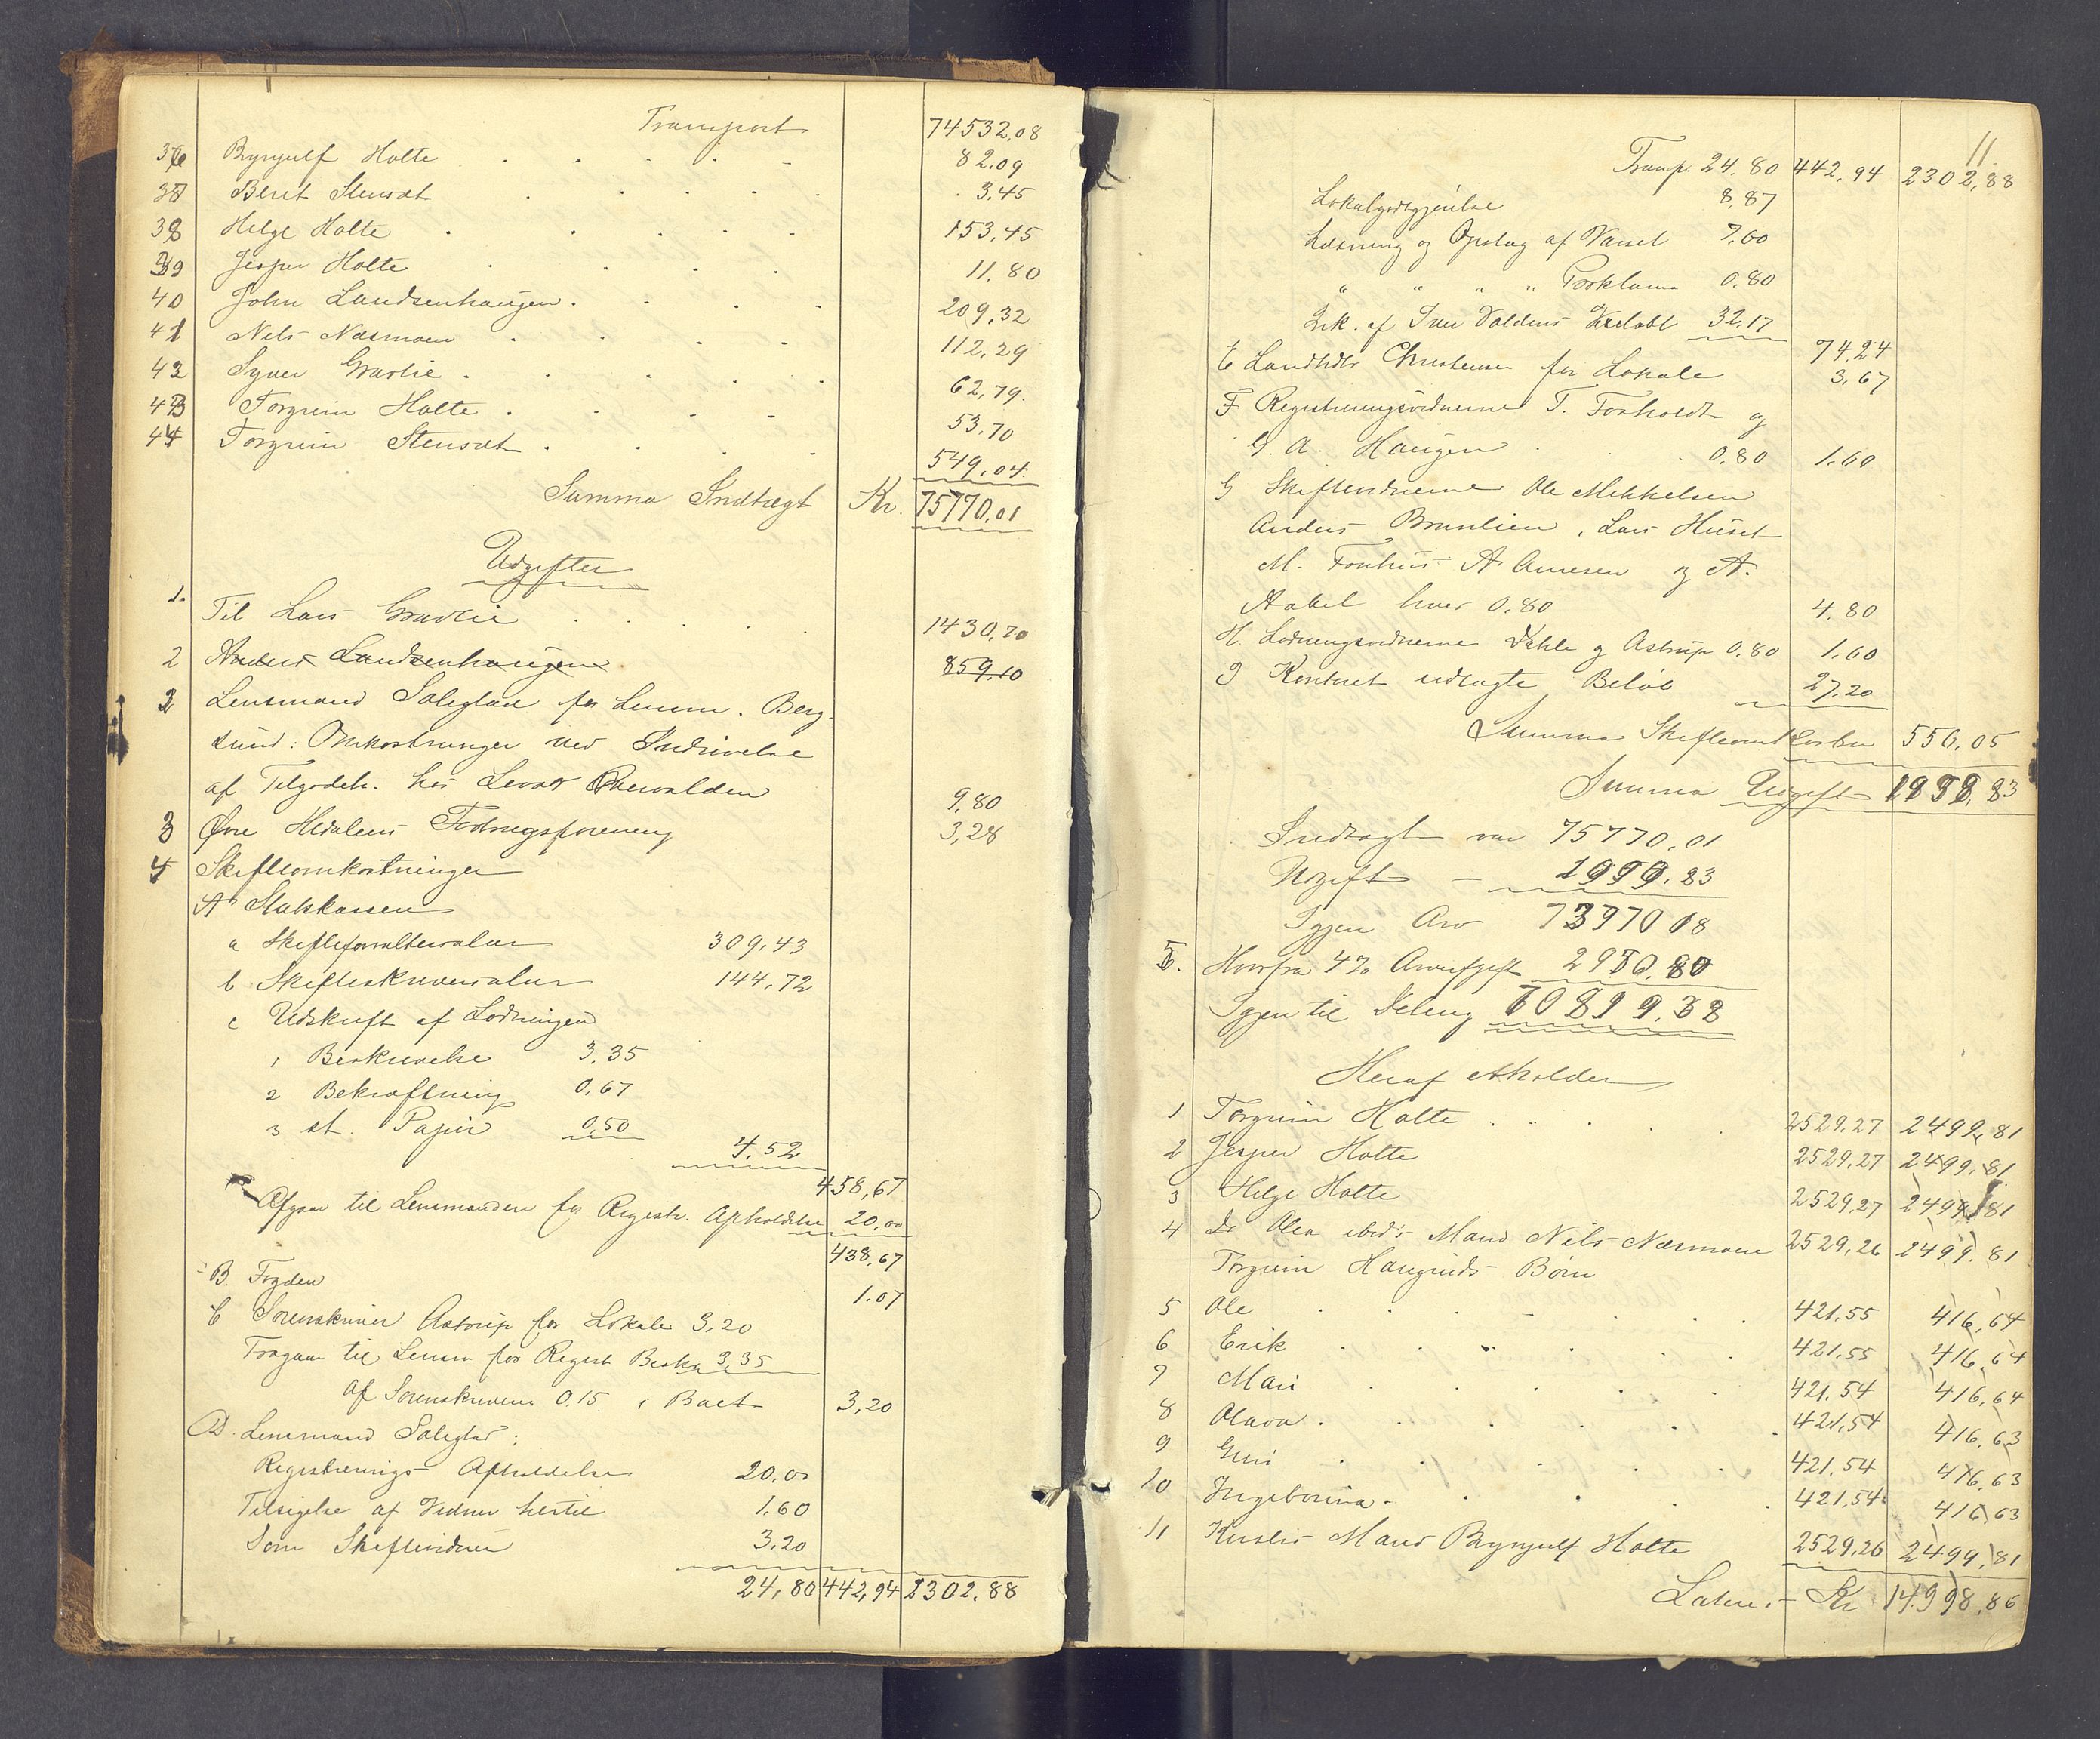 Transport 74532,08
36 Byrgulf Holte 82.09
37 Berit Stensæt 3.45
38 Helge Holte 153,45
39 Jesper Holte 11,80
40 John Landsenhaugen 209,32
41 Nils Næsmoen 112,29
42 Syver Gravlie 62,79
43 Torgrim Holte 53.70
44 Torgrim Stensæt 549,04
Summa Indtægt Kr. 75770,01
Udgifter
1. Til Lars Gravlie 1430,70
2 Anders Landsenhaugen 859,10
2 Lensmand Saleglad for Lensm. Berg-
sund: Omkostninger ved Inddrivelse
af Tilgodeh. hos Levor 9,80
3 Øvre Hedalens Forening 3,28
4 Skifteomkostninger
A Statskassen
a Skifteforvaltersalær 309,43
b Skifteskriversalær 144,72
c Udskrift af Lodningen
1 Beskrivelse 3.35
2 Bekræftning 0,67
3 st. Papir 0,50
4.52
458,67
Afgaar til Lensmanden for Registr. Afholdelse 20,00
438,67
B. Fogden 1.07
C Sorenskriver Astrup for Lokale 3,20
Fragaar til Lensm for Regist Beskr 3,35
af Sorenskriveren 0.15 i Baet 3,20
D. Lensmand Saleglad:
Registrerings Afholdelse 20,00
Tilsigelse af Vidner hertil 1.60
Som Skiftevidne 3.20
24,80 442,94 2302.88
11.
Transp. 24.80 442,94 2302,88
Lokalgodtgjørelse 8,87
Læsning og Opslag af Varsel 7,60
" " " " Proklama 0.80
af Iver Voldens 32,17
74.24
E Landh. Christensen for Lokale 3.67
F Registreringsvidnerne T. Fonholdt og
G. A. Haugen 0.80 1.60
G Skiftevidnerne Ole Mikkelsen
Anders Brunlien, Lars Huset
M. Fonhus A Arnesen og A.
Aabel hver 0.80 4.80
H. Lodningsvidnerne Dæhle og Astrup 0.80 1.60
J Kontoret udlagte Beløb 27.20
Summa Skifteomkostn 556,05
Summa Udgift 1999,83
Indtægt var 75770,01
Udgift – 1999.83
Igjen Arv 73970 18
5. Hvorfra 4% Arveafgift 2950.80
Igjen til Deling 70819.38
Heraf erholder
1 Torgrim Holte 2529.27 2499,81
2 Jesper Holte 2529,27 2499,81
3 Helge Holte 2529,27 2499,81
4 Do Olea ibds Mand Nils Næsmoen 2529,26 2499.81
Torgrim Haugruds Børn
5 Ole 421,55 416,64
6 Erik 421.55 416,64
7 Mari 421.54 416,64
8 Olava 421,54 416.63
9 Guri 421.54 416,63
10 Ingeborina 421,54 416,63
11 Kirstis Mand Byrgulf Holte 2529,26 2499,81
Latus Kr 14998,86